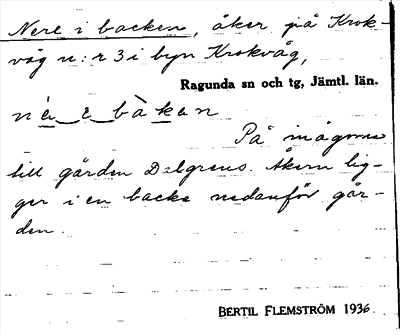 Nere i backen, åker på Krok-
våg n:r 3 i byn Krokvåg,
Ragunda sn och tg, Jämtl. län.
På inägorna
till gården Dalgrens. Åkern lig-
ger i en backe nedanför går-
den.
BERTIL FLEMSTRÖM 1936